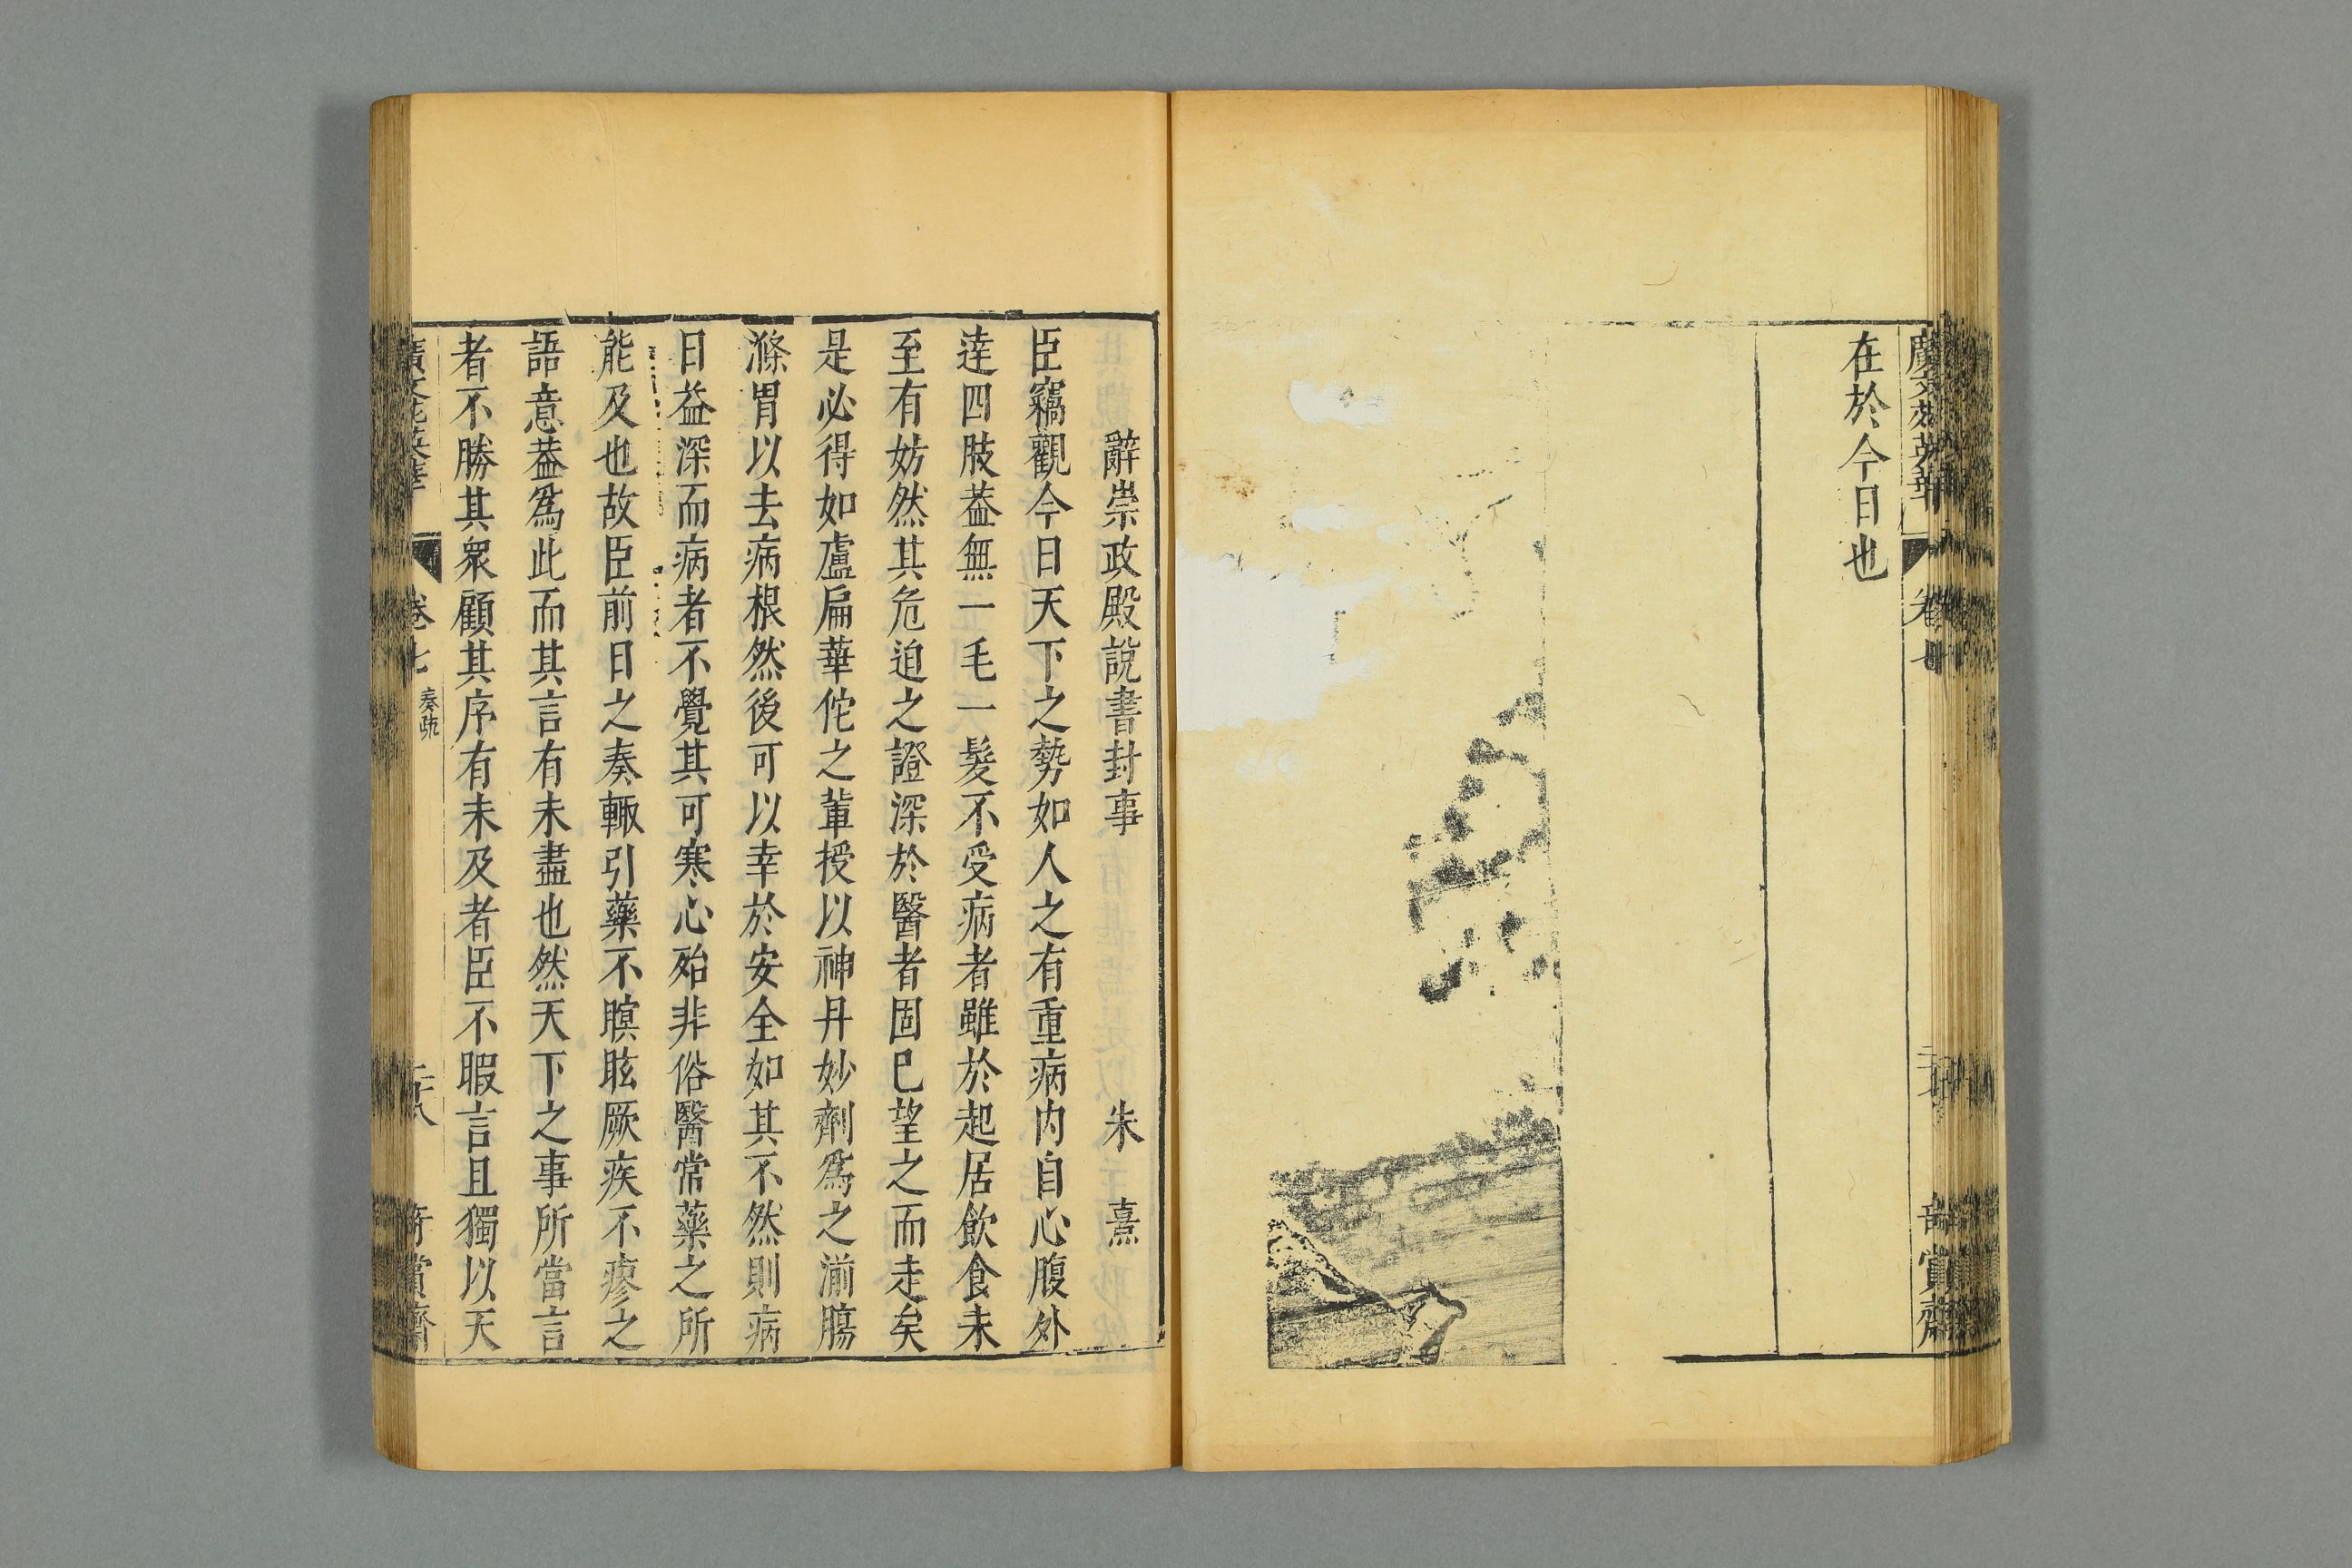 在於今日也
辭崇政殿說書封事 朱熹
臣竊觀今日天下之勢如人之有重病内自心腹外
逹四肢葢無一毛一髮不受病者雖於起居飲食未
至有妨然其危迫之證深於醫者固已望之而走矣
是必得如盧扁華佗之輩授以神丹妙劑爲之湔腸
滌胃以去病根然後可以幸於安全如其不然則病
日益深而病者不覺其可寒心殆非俗醫常藥之所
能及也故臣前日之奏輙引藥不瞑眩厥疾不瘳之
語意葢爲此而其言有未盡也然天下之事所當言
者不勝其衆顧其序有未及者臣不暇言且獨以天
卷七 奏疏 二十八